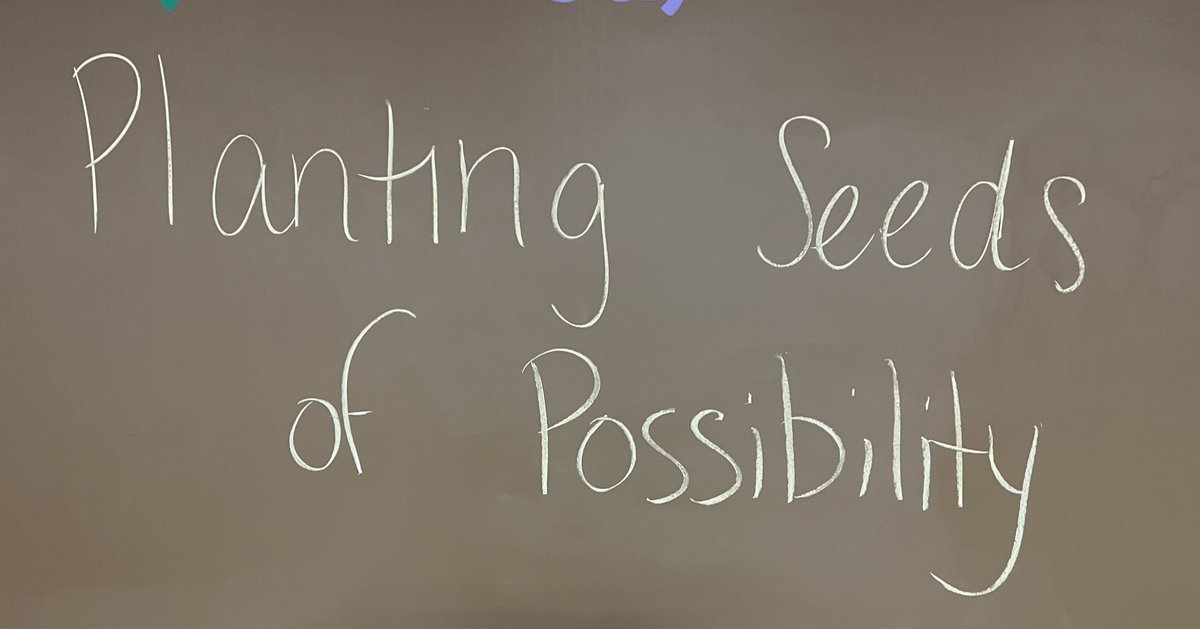 Planting Seeds
of Possibility